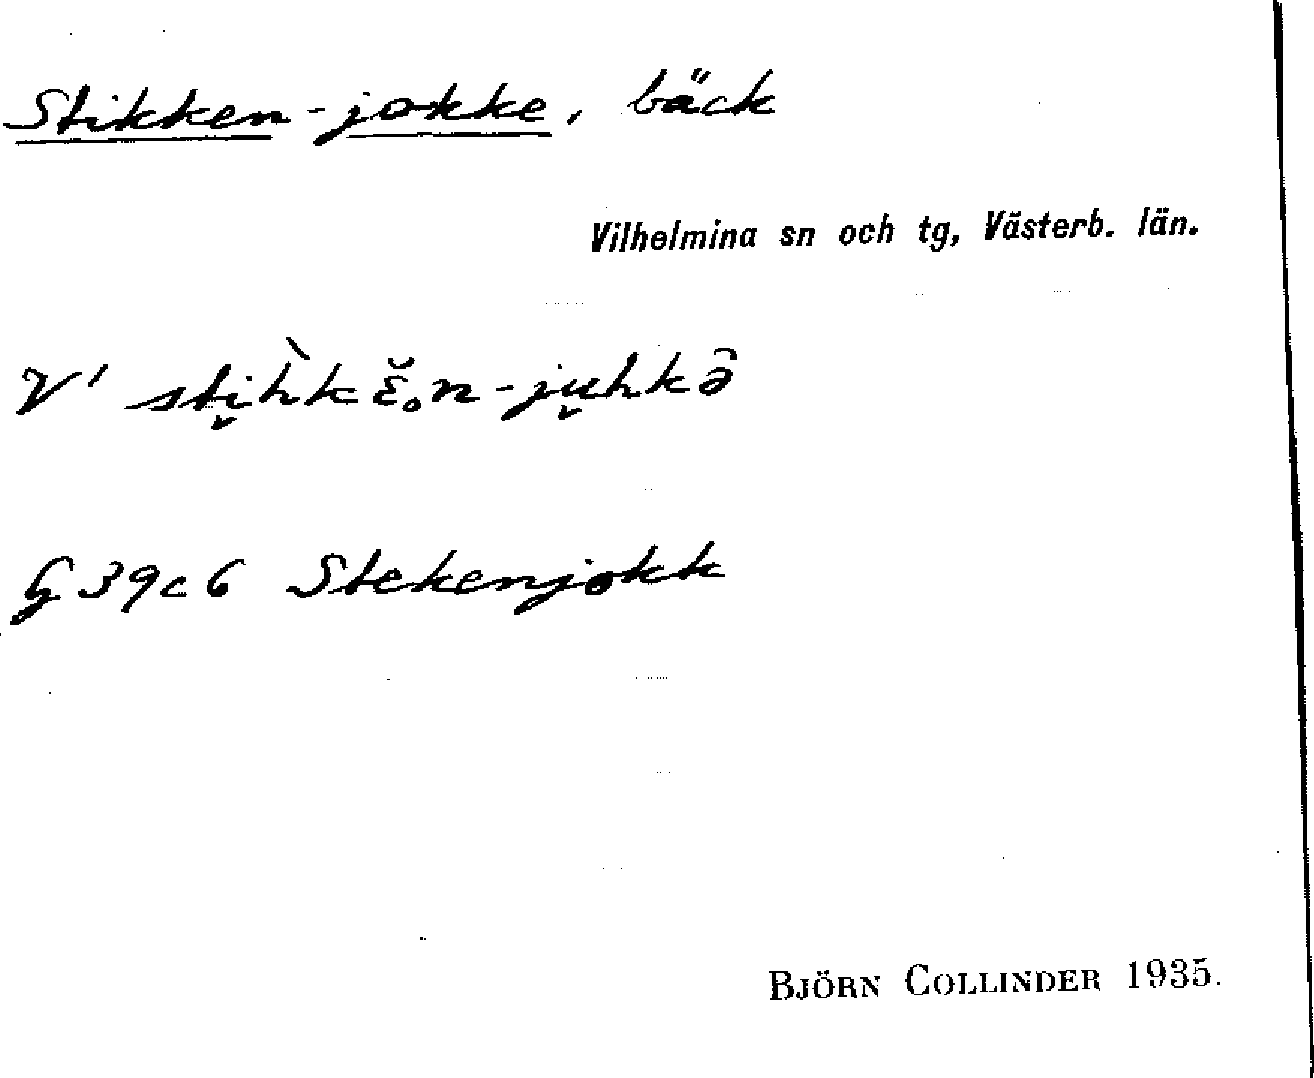 Stikken-jokke, bäck
Vilhelmina sn och tg, Västerb. län.
V' sti̬h̀kɛ̆˳n-ju̬hkə̑
G 39c6 Stekenjokk
BJÖRN COLLINDER 1935.